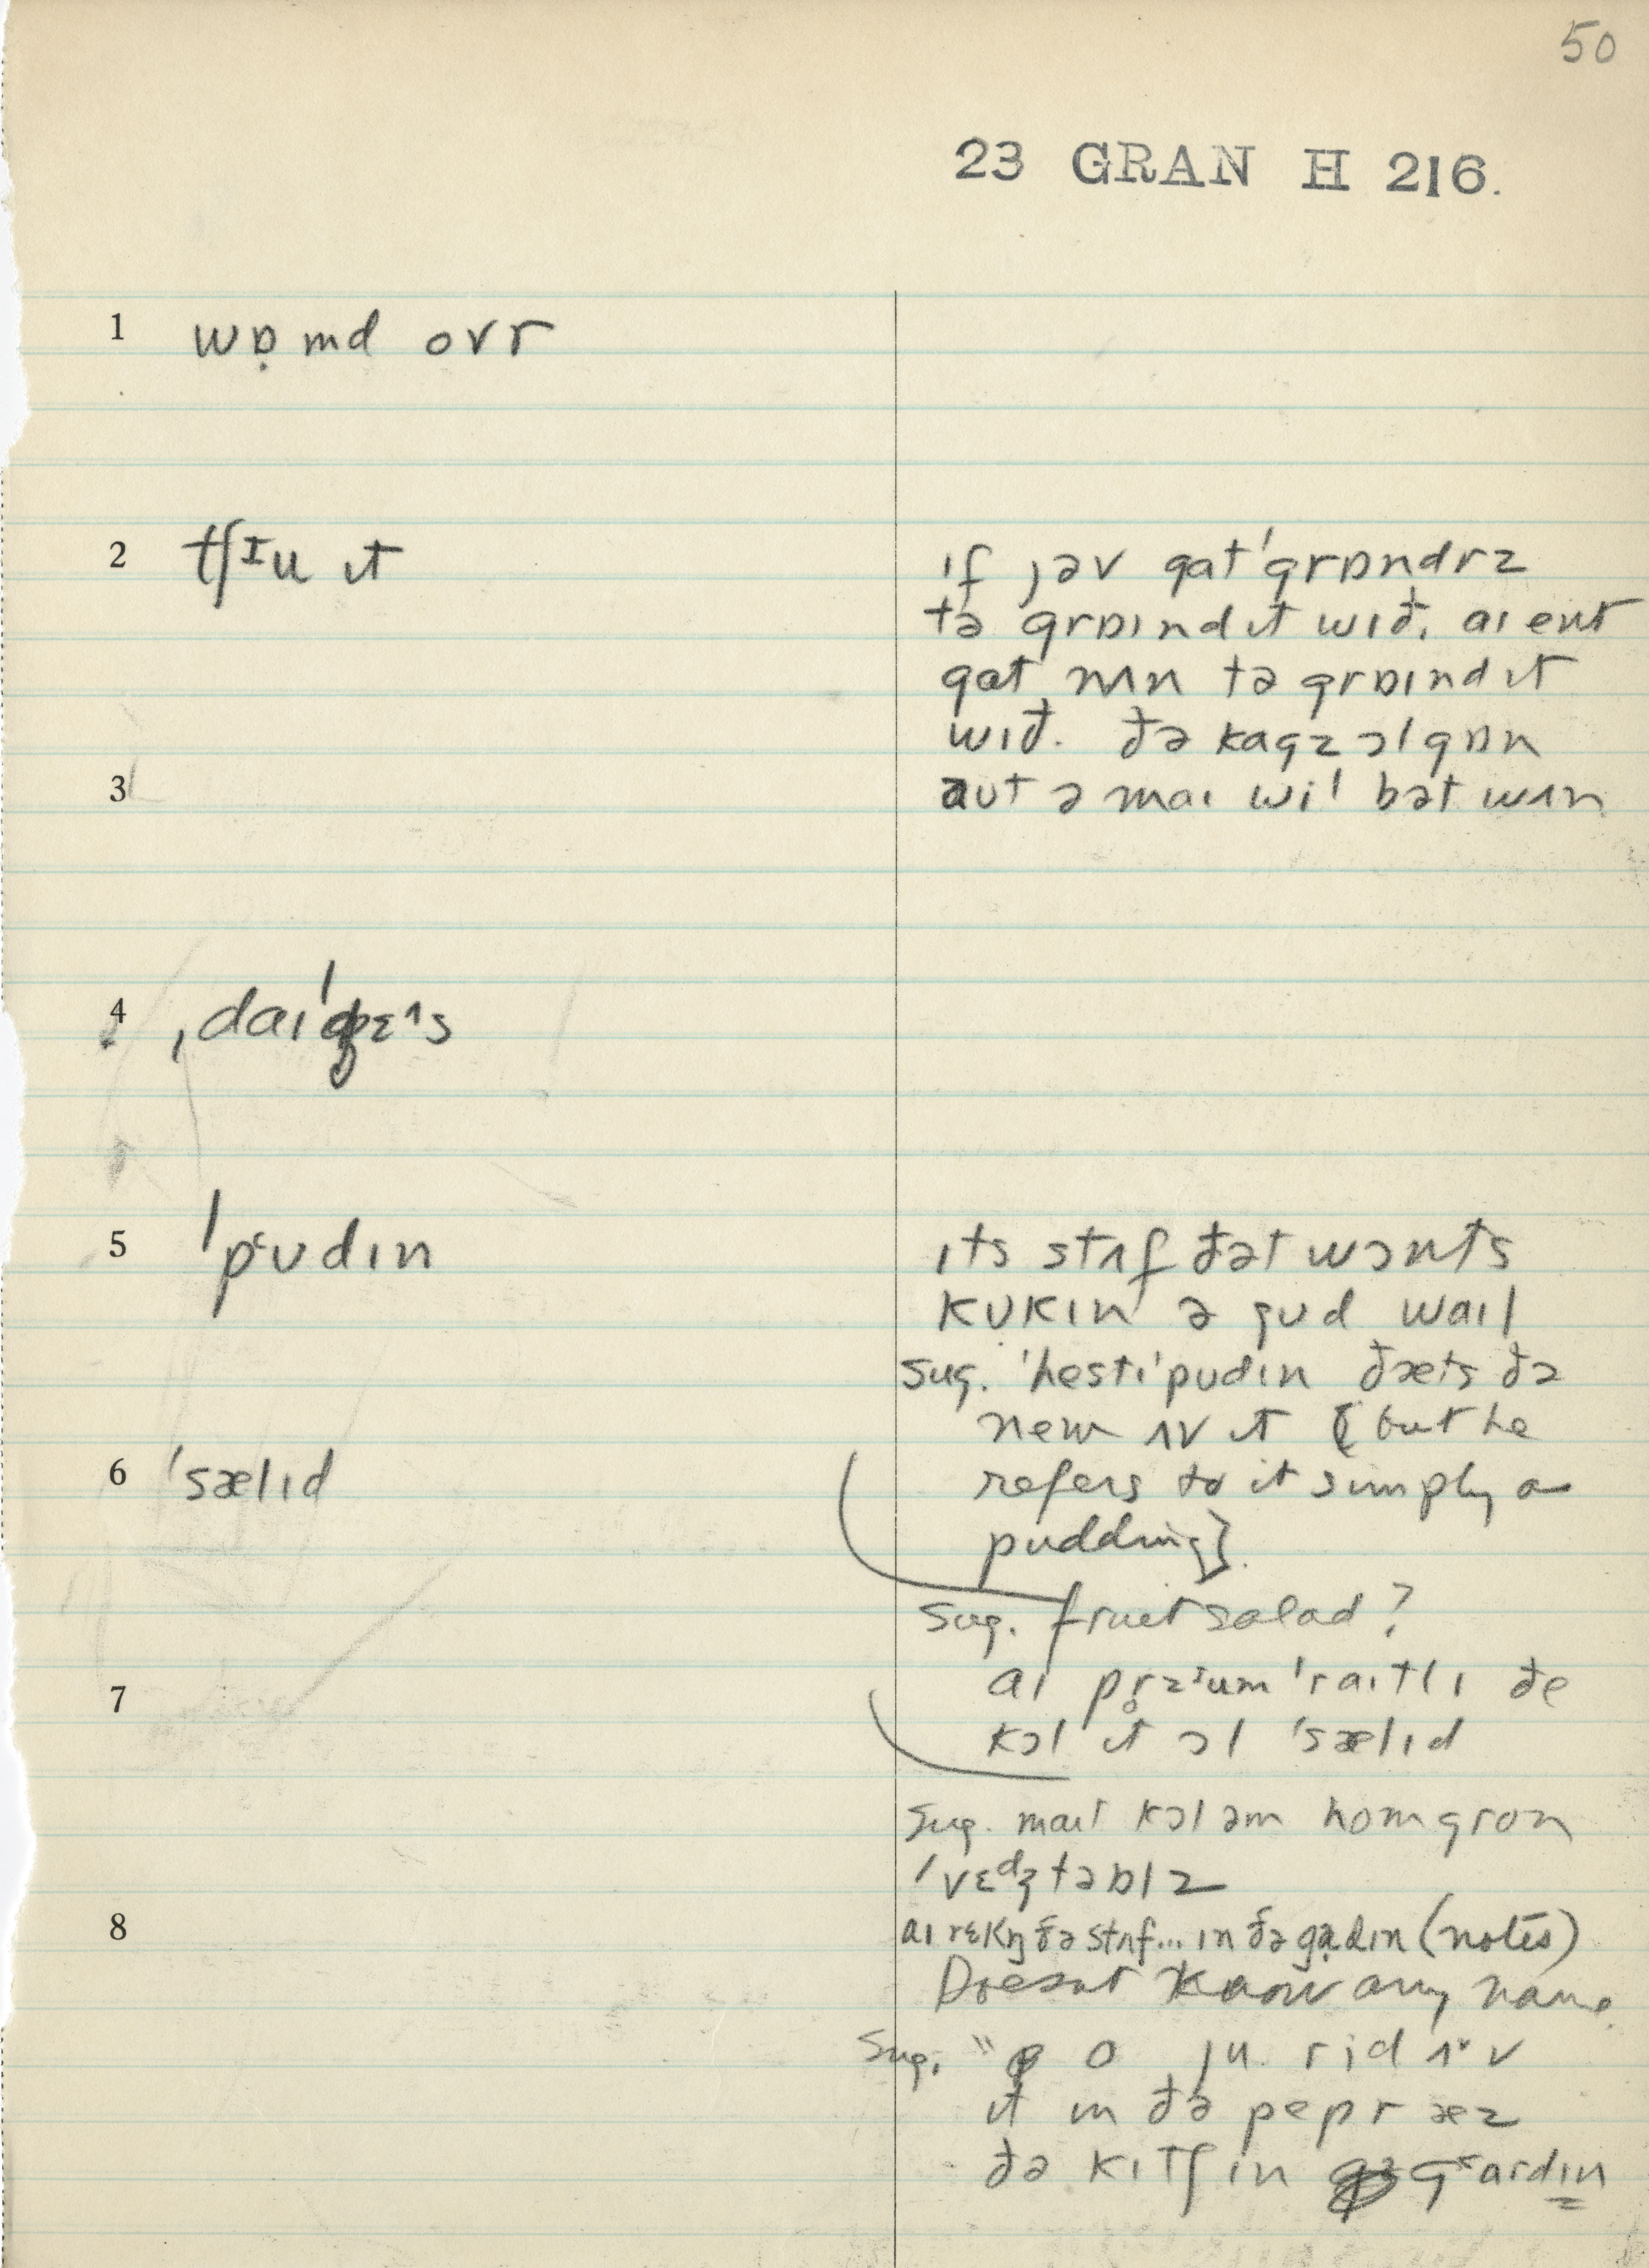 50
23 GRAN H 216.
1 wɒ̣md ovr
2 tʃᶦu ɪt
ɪf jəv gat ˈgrɒndrz
tə grɒɪnd ɪt wɪð. aɪ ent
gat nʌn tə grɒɪnd ɪt
wɪð. ðə kagz ɔl gɒn
3
aut ə maɪ wil bət wʌn
4 ˌdaɪˈdʒɛᶺs
5 ˈpᶜʊdɪn
ɪts stʌf ðət wɔnts
kʊkɪn ə gʊd waɪl
sug. ˈhestiˈpʊdɪn ðæts ðə
nem ʌv ɪt [but he
6 ˈsælɪd
refers to it simply as
pudding].
sug. fruit salad?
7
aɪ pr̥zᶦumˈraɪtlɪ ðe
kɔl ɪt ɔl ˈsælɪd
sug. maɪt kɔl əm homgron
ˈvɛdʒtəblz
8
aɪ rɛkŋ ðə stʌf... ɪn ðə gạdɪn (notes)
Doesnt know any name
Sug. " o ju rid ʌv
ɪt ɪn ðə pepr æz
ðə kɪtʃin gᶜardɪn